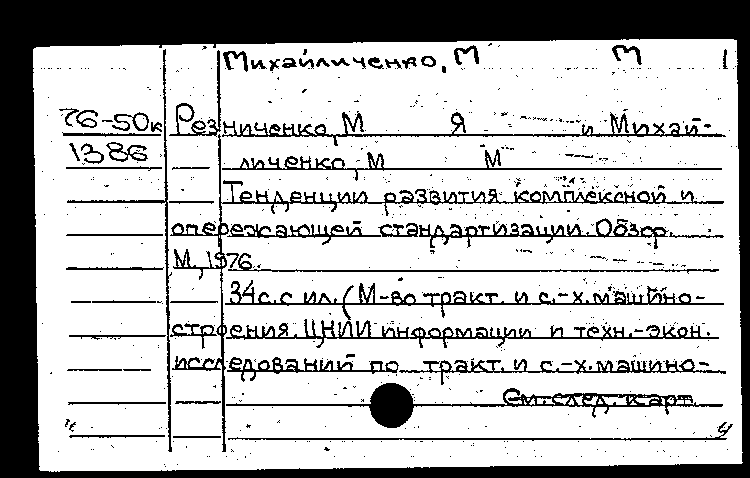 Михайличенко, М М 1
76-50к Резниченко, М Я и Михай-
1386 личенко, М М
Тенденции развития комплексной и
опережающей стандартизации. Обзор.
М., 1976.
34с. с ил. (М-во тракт. и с.-х. машино-
строения. ЦНИИ информации и техн.-экон.
исследований по тракт. и с.-х. машино-
См. след. карт.